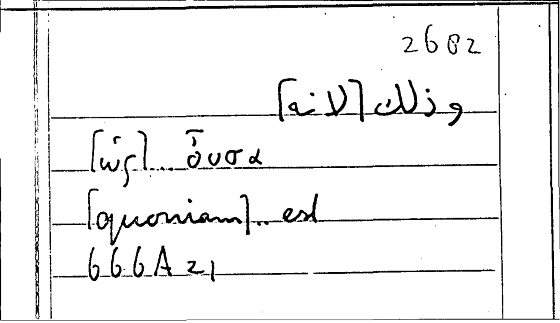 2682
وذلك [لانه]
[ὡς]...οὖσα
[quoniam]..est
666A21